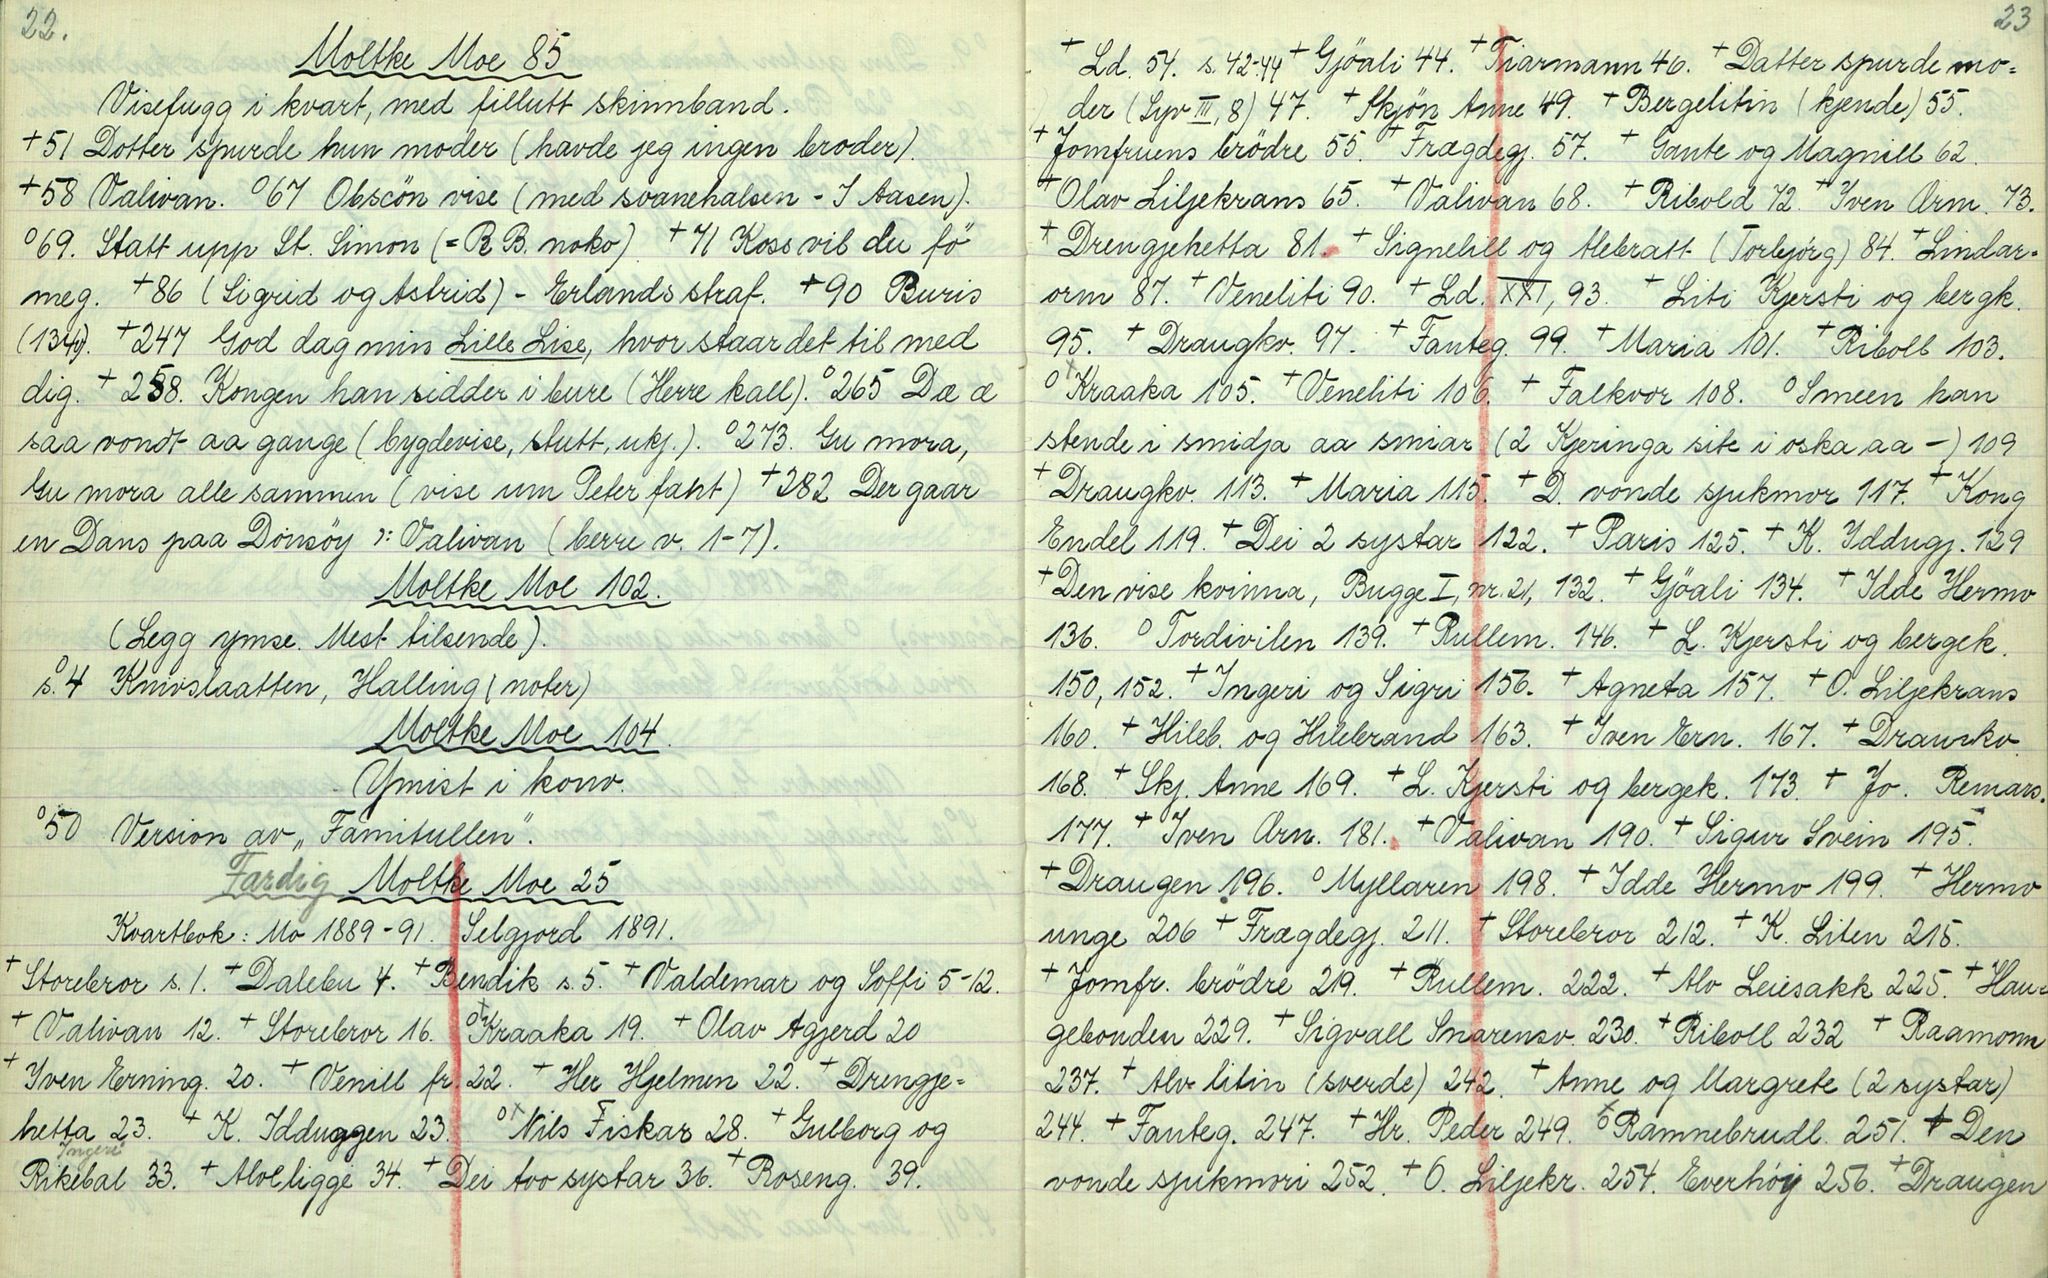 22.
Moltke Moe 85
Visefugg i kvart, med fillutt skinnband.
+51 Dotter spurde hun moder (havde jeg ingen broder).
+58 Valivan. º67 Obscön vise (med svanehalsen - I Aasen).
º69. Statt upp St. Simon (= R B. noko) +71 Koss vil du fö
meg. +86 (Sigrid og Astrid) - Erlands straf. +90 Buris
(134v). +247 God dag min Lille Lise, hvor staar det til med
dig. +258. Kongen han sidder i bure (Herre kall). º265 Dæ æ
saa vondt aa gange (bygdevise, stutt, ukj.). º273. Gu mora,
Gu mora alle sammen (vise um Peter fant) +282 Der gaar
en Dans paa Donsöy ɔ: Valivan (berre v. 1-7).
Moltke Moe 102.
(Legg ymse. Mest tilsende).
º s. 4 Knivslaatten, Halling (noter)
Moltke Moe 104.
Ymist i konv.
º50 Version av „Famitullen".
Færdig Moltke Moe 25
Kvartbok: Mo 1889-91. Selgjord 1891.
+Storebror s. 1. +Dalebu 4. +Bendik s. 5. +Valdemar og Soffi 5-12.
+Valivan 12. +Storebror 16. ºxKraaka 19. +Olav Agjerd 20
+Iven Erning. 20. +Venill fr. 22. +Her Hjelmen 22. +Drengje=
hetta 23. +K. Idduggen 23. ºxNils Fiskar 28. +Gulborg og
Ingeri
Rikebal 33. +Alveliggi 34. +Dei tvo systar 36. +Roseng. 39.
23
+Ld. 54. s. 42-44 +Gjöali 44. +Tiarmann 46. +Datter spurde mo=
der (Syv III, 8) 47. +Skjön Anne 49. +Bergelitin (kjende) 55.
+Jomfruens brödre 55. +Frægdegj. 57. +Gaute og Magnill 62.
+Olav Liljekrans 65. +Valivan 68. +Ribold 72. +Iven Arm. 73.
+Drengjehetta 81. +Signelill og Alebratt (Torbjörg) 84. +Lindar=
orm 87. +Veneliti 90. +Ld. XXI, 93. +Liti Kjersti og bergk.
95. +Draugkv. 97. +Fanteg. 99. +Maria 101. +Riboll 103.
ºxKraaka 105. +Veneliti 106. +Falkvor 108. ºSmeen han
stende i smidja aa smiar (2 Kjeringa site i oska aa -) 109
+Draugkv. 113. +Maria 115. +D. vonde sjukmor 117. +Kong
Endel 119. +Dei 2 systar 122. +Paris 125. +K. Iddugj. 129
+Den vise kvinna, Bugge I, nr. 21, 132. +Gjöali 134. +Idde Hermo
136. ºTordivilen 139. +Rullem. 146. +L. Kjersti og bergek.
150, 152. +Ingeri og Sigri 156. +Agneta 157. +O. Liljekrans
160. +Hileb. og Hilebrand 163. +Iven Ern. 167. +Draugkv.
168. +Skj. Anne 169. +L. Kjersti og bergek. 173. +Jo. Remars.
177. +Iven Arn. 181. +Valivan 190. +Sigur Svein 195.
+Draugen 196. ºMyllaren 198. +Idde Hermo 199. +Hermo
unge 206 +Frægdegj. 211. +Storebror 212. +K. Liten 215.
+Jomfr. brödre 219. +Rullem. 222. +Alv Leiesakk 225. +Hau=
gebonden 229. +Sigvall Snarensv. 230. +Riboll 232 +Raamonn
237. +Alv litin (sverde) 242. +Anne og Margrete (2 systar)
244. +Fanteg. 247. +Hr. Peder 249. ºxRamnebrudl. 251. +Den
vonde sjukmori 252. +O. Liljekr. 254. Everhöy 256. +Draugen